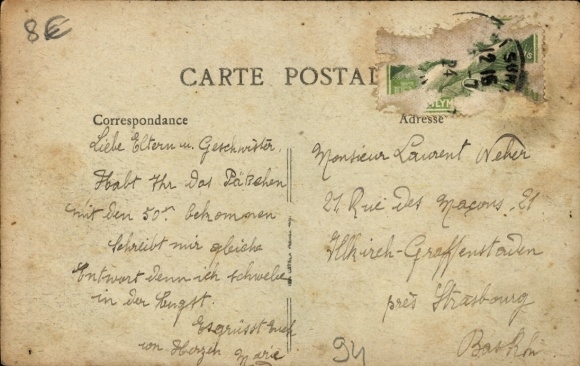 8€
CARTE POSTAL
Correspondance
Adresse
Liebe Eltern u. Geschwister,
Habt Ihr das Päckchen
mit den 50er bekommen
schreibt mir gleich
Entwort denn ich schwebe
in der Angst.
Es grüsst Euch
von Herzen
Marie
Monsieur Laurent Weber
21 Rue des Maçons 21
Illkirch-Graffenstaden
près Strasbourg
Bas Rhin
94